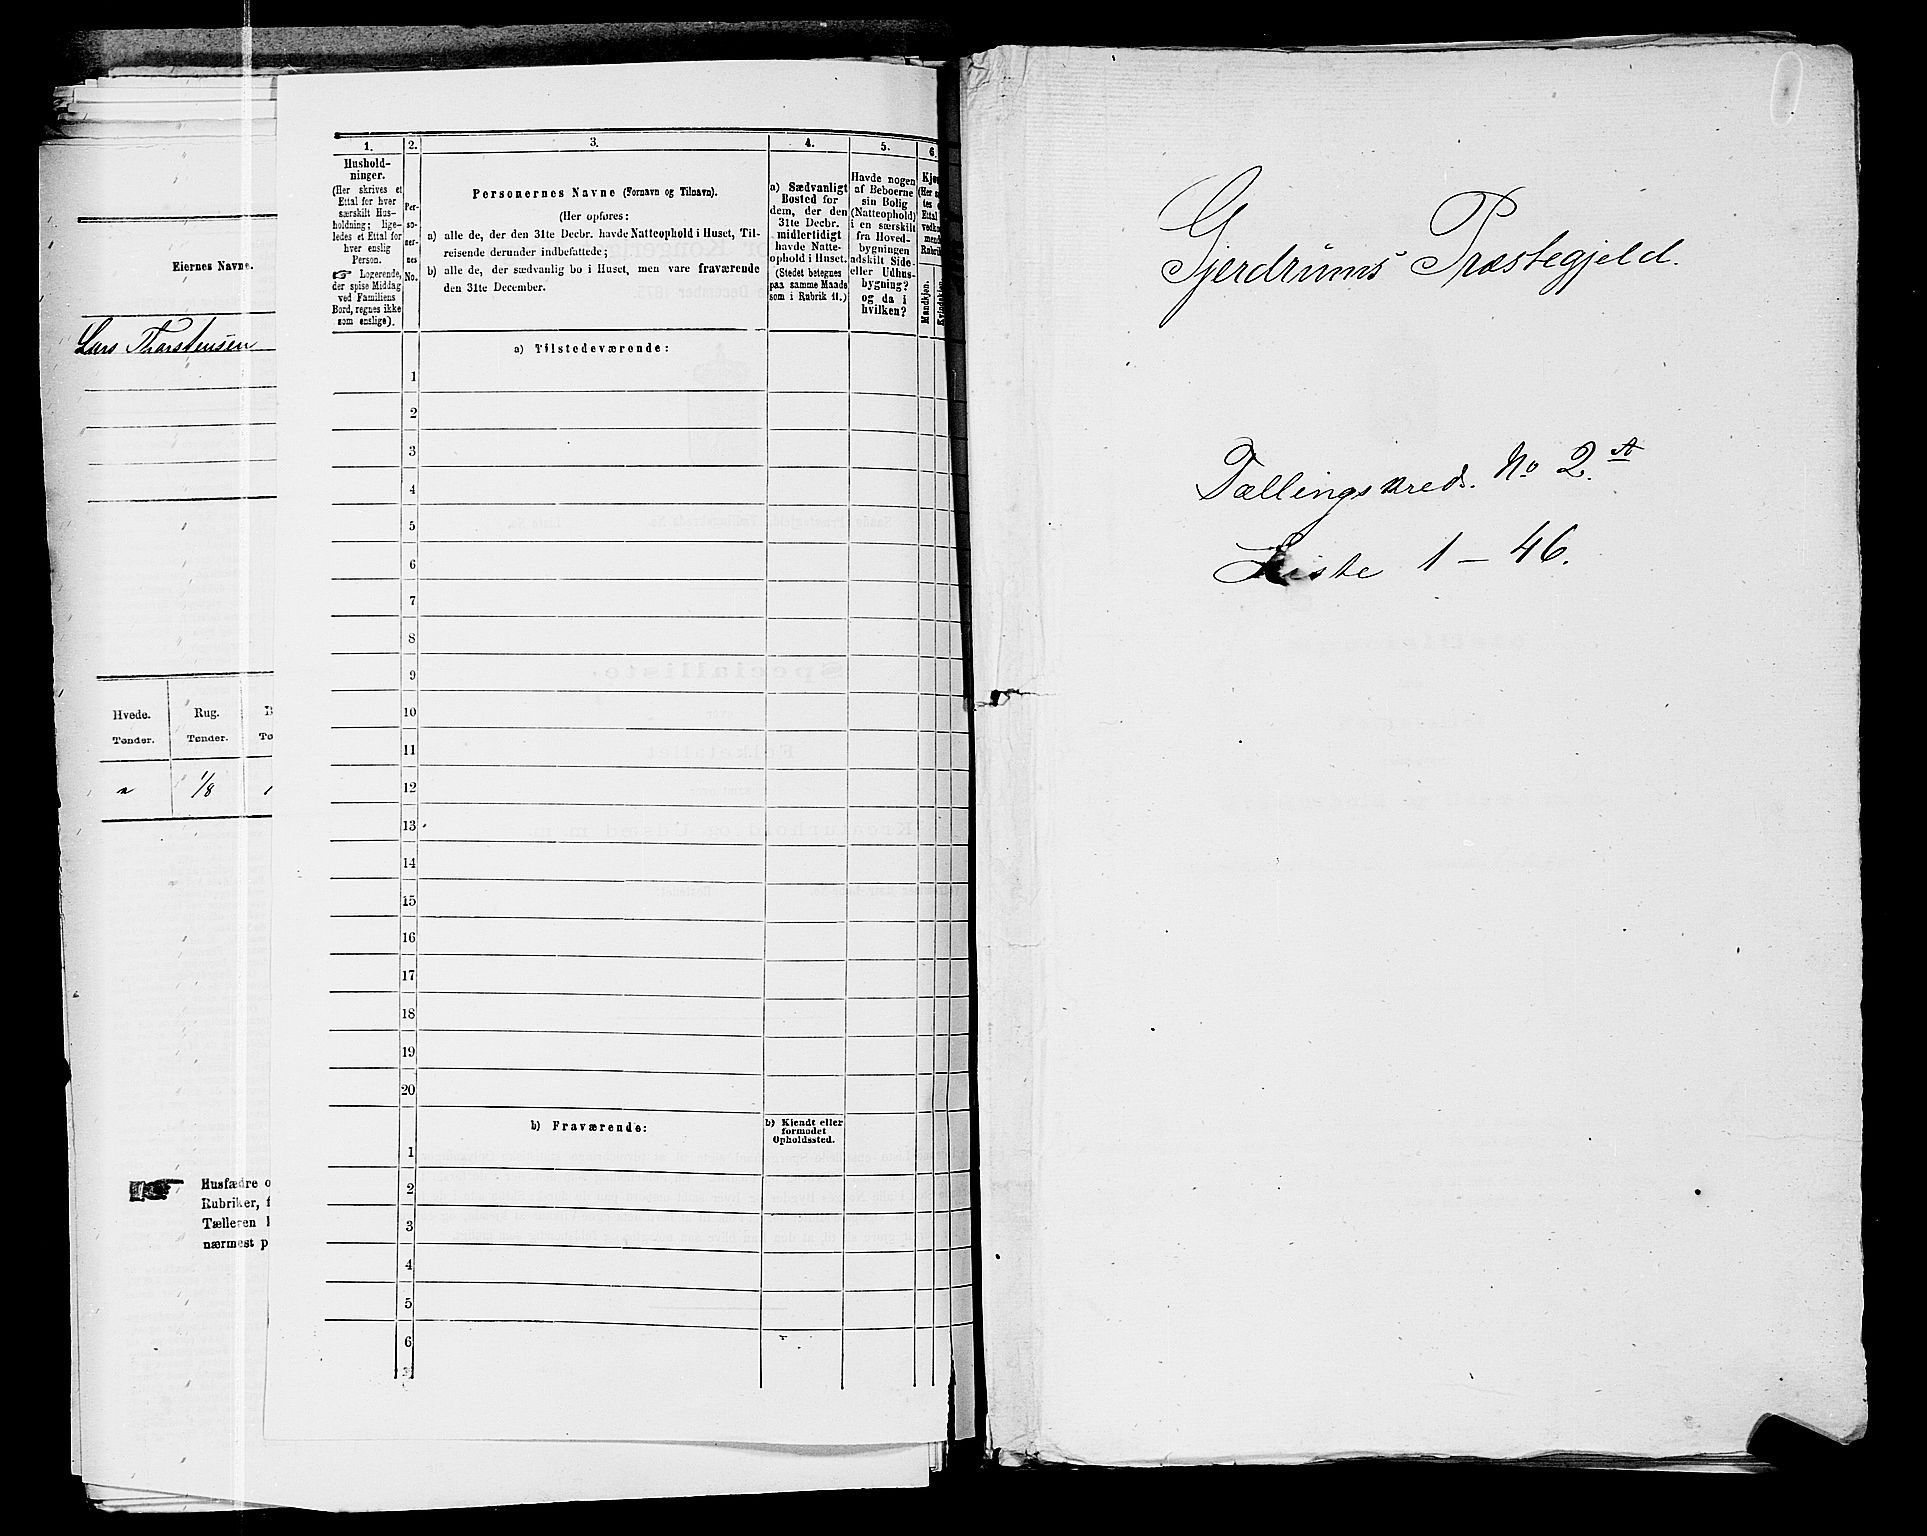 Eiernes Navne.
Lars Thorstensen
Hvede.
Rug.
Tønder.
Tønder.
1/8
Husfædre o
Rubriker, f
Tælleren
nærmest p
1.
2.
3.
4.
5.
6.
Hushold-
ninger.
(Her skrives et
Ettal for hver
særskilt Hus-
holdning; lige-
ledes et Ettal for
hver enslig
Person.
☞ Logerende,
der spise Middag
ved Familiens
Bord, regnes ikke
som enslige).
Per-
so-
ner-
nes
No.
Personernes Navne (Fornavn og Tilnavn).
(Her opføres:
a) alle de, der den 31te Decbr. havde Natteophold i Huset, Til-
reisende derunder indbefattede;
b) alle de, der sædvanlig bo i Huset, men vare fraværende
den 31te December.
a) Sædvanligt
Bosted for
dem, der den
31te Decbr.
midlertidigt
havde Natte-
ophold i Huset.
(Stedet betegnes
paa samme Maade
som i Rubrik 11.)
Havde nogen
af Beboerne
sin Bolig
(Natteophold)
i en særskilt
fra Hoved-
bygningen
adskilt Side-
eller Udhus-
bygning?
og da i
hvilken?
Kjø
(Her
tes
Ettal
ved
men
Rubrik
Mandkjøn.
Kvindekjøn.
a) Tilstedeværende:
1
2
3
4
5
6
7
8
9
10
11
12
13
14
15
16
17
18
19
20
b) Fraværende:
b) Kjendt eller
formodet
Opholdssted.
1
2
3
4
5
6
Gjerdrums Præstegjeld.
Tællingskreds. No 2.
Liste 1 – 46.